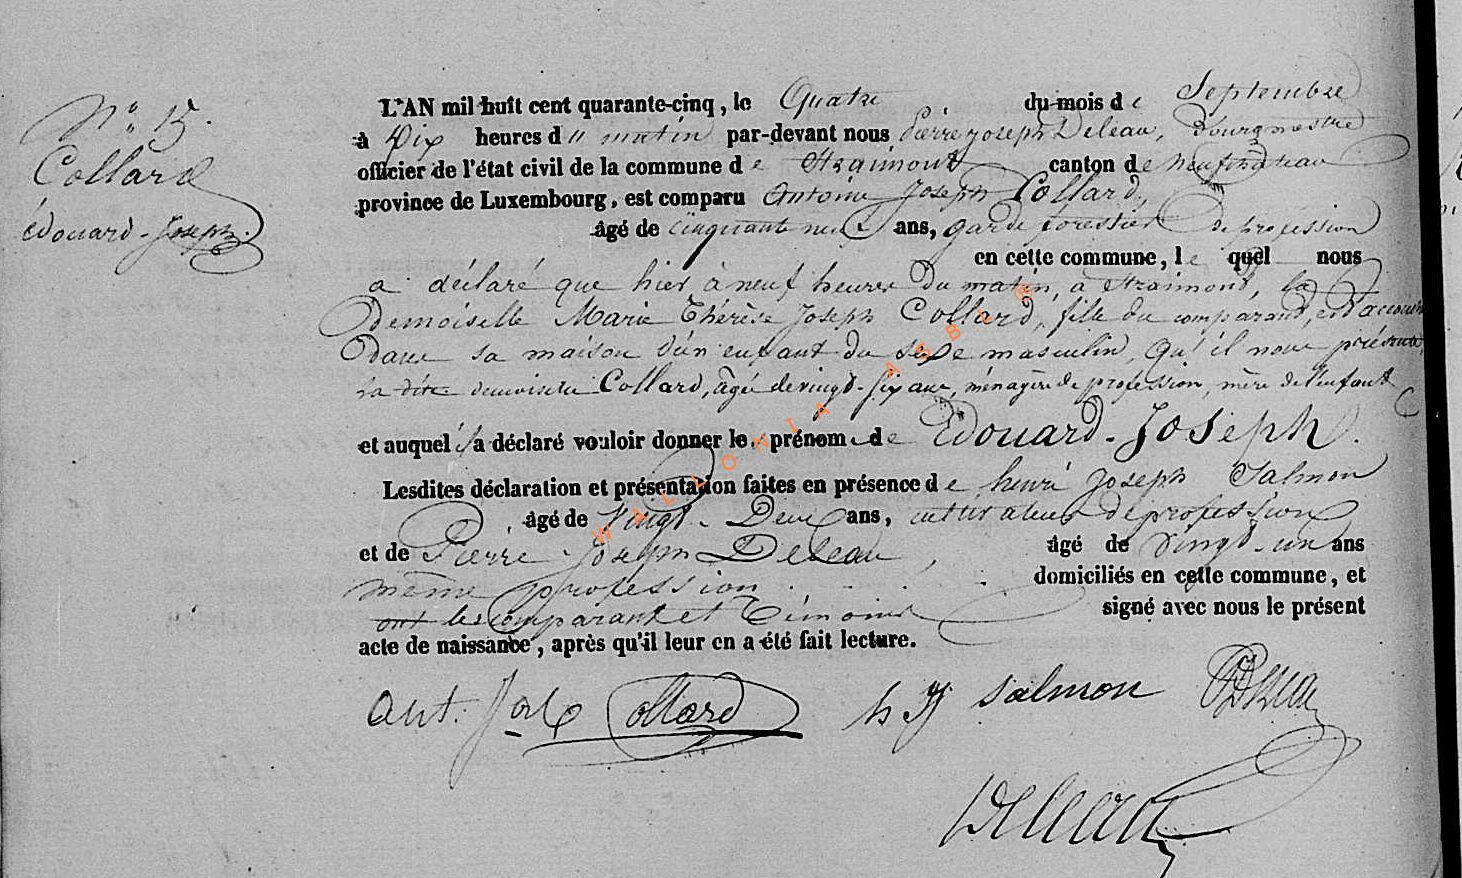 N° 15.
Collard
édouard-Joseph.
L'AN mil huit cent quarante-cinq, le Quatre du mois de Septembre
à Dix heures du matin par-devant nous Pierre joseph Deleau, Bourgmestre
officier de l'état civil de la commune de Straimont canton de neufchâteau
province de Luxembourg, est comparu Antoine Joseph Collard,
âgé de cinquante neuf ans, garde forestier de profession
en cette commune, lequel nous
a déclaré que hier à neuf heures du matin, à Straimont, la
Demoiselle Marie Thérèse Joseph Collard, fille du comparant, est accouchée
dans sa maison d'un enfant du sexe masculin, qu'il nous présente,
la dite demoiselle Collard, âgée de vingt-six ans, ménagère de profession, mère de l'enfant
et auquel il a déclaré vouloir donner les prénoms de Edouard-Joseph.
Lesdites déclaration et présentation faites en présence de henri Joseph Salmon
âgé de Vingt-Deux ans, cultivateur de profession
et de Pierre-Joseph Deleau, âgé de vingt-un ans
même profession domiciliés en cette commune, et
ont les comparant et témoins signé avec nous le présent
acte de naissance, après qu'il leur en a été fait lecture.
Ant. Jos Collard h J Salmon
Deleau
WALLONIA ASBL